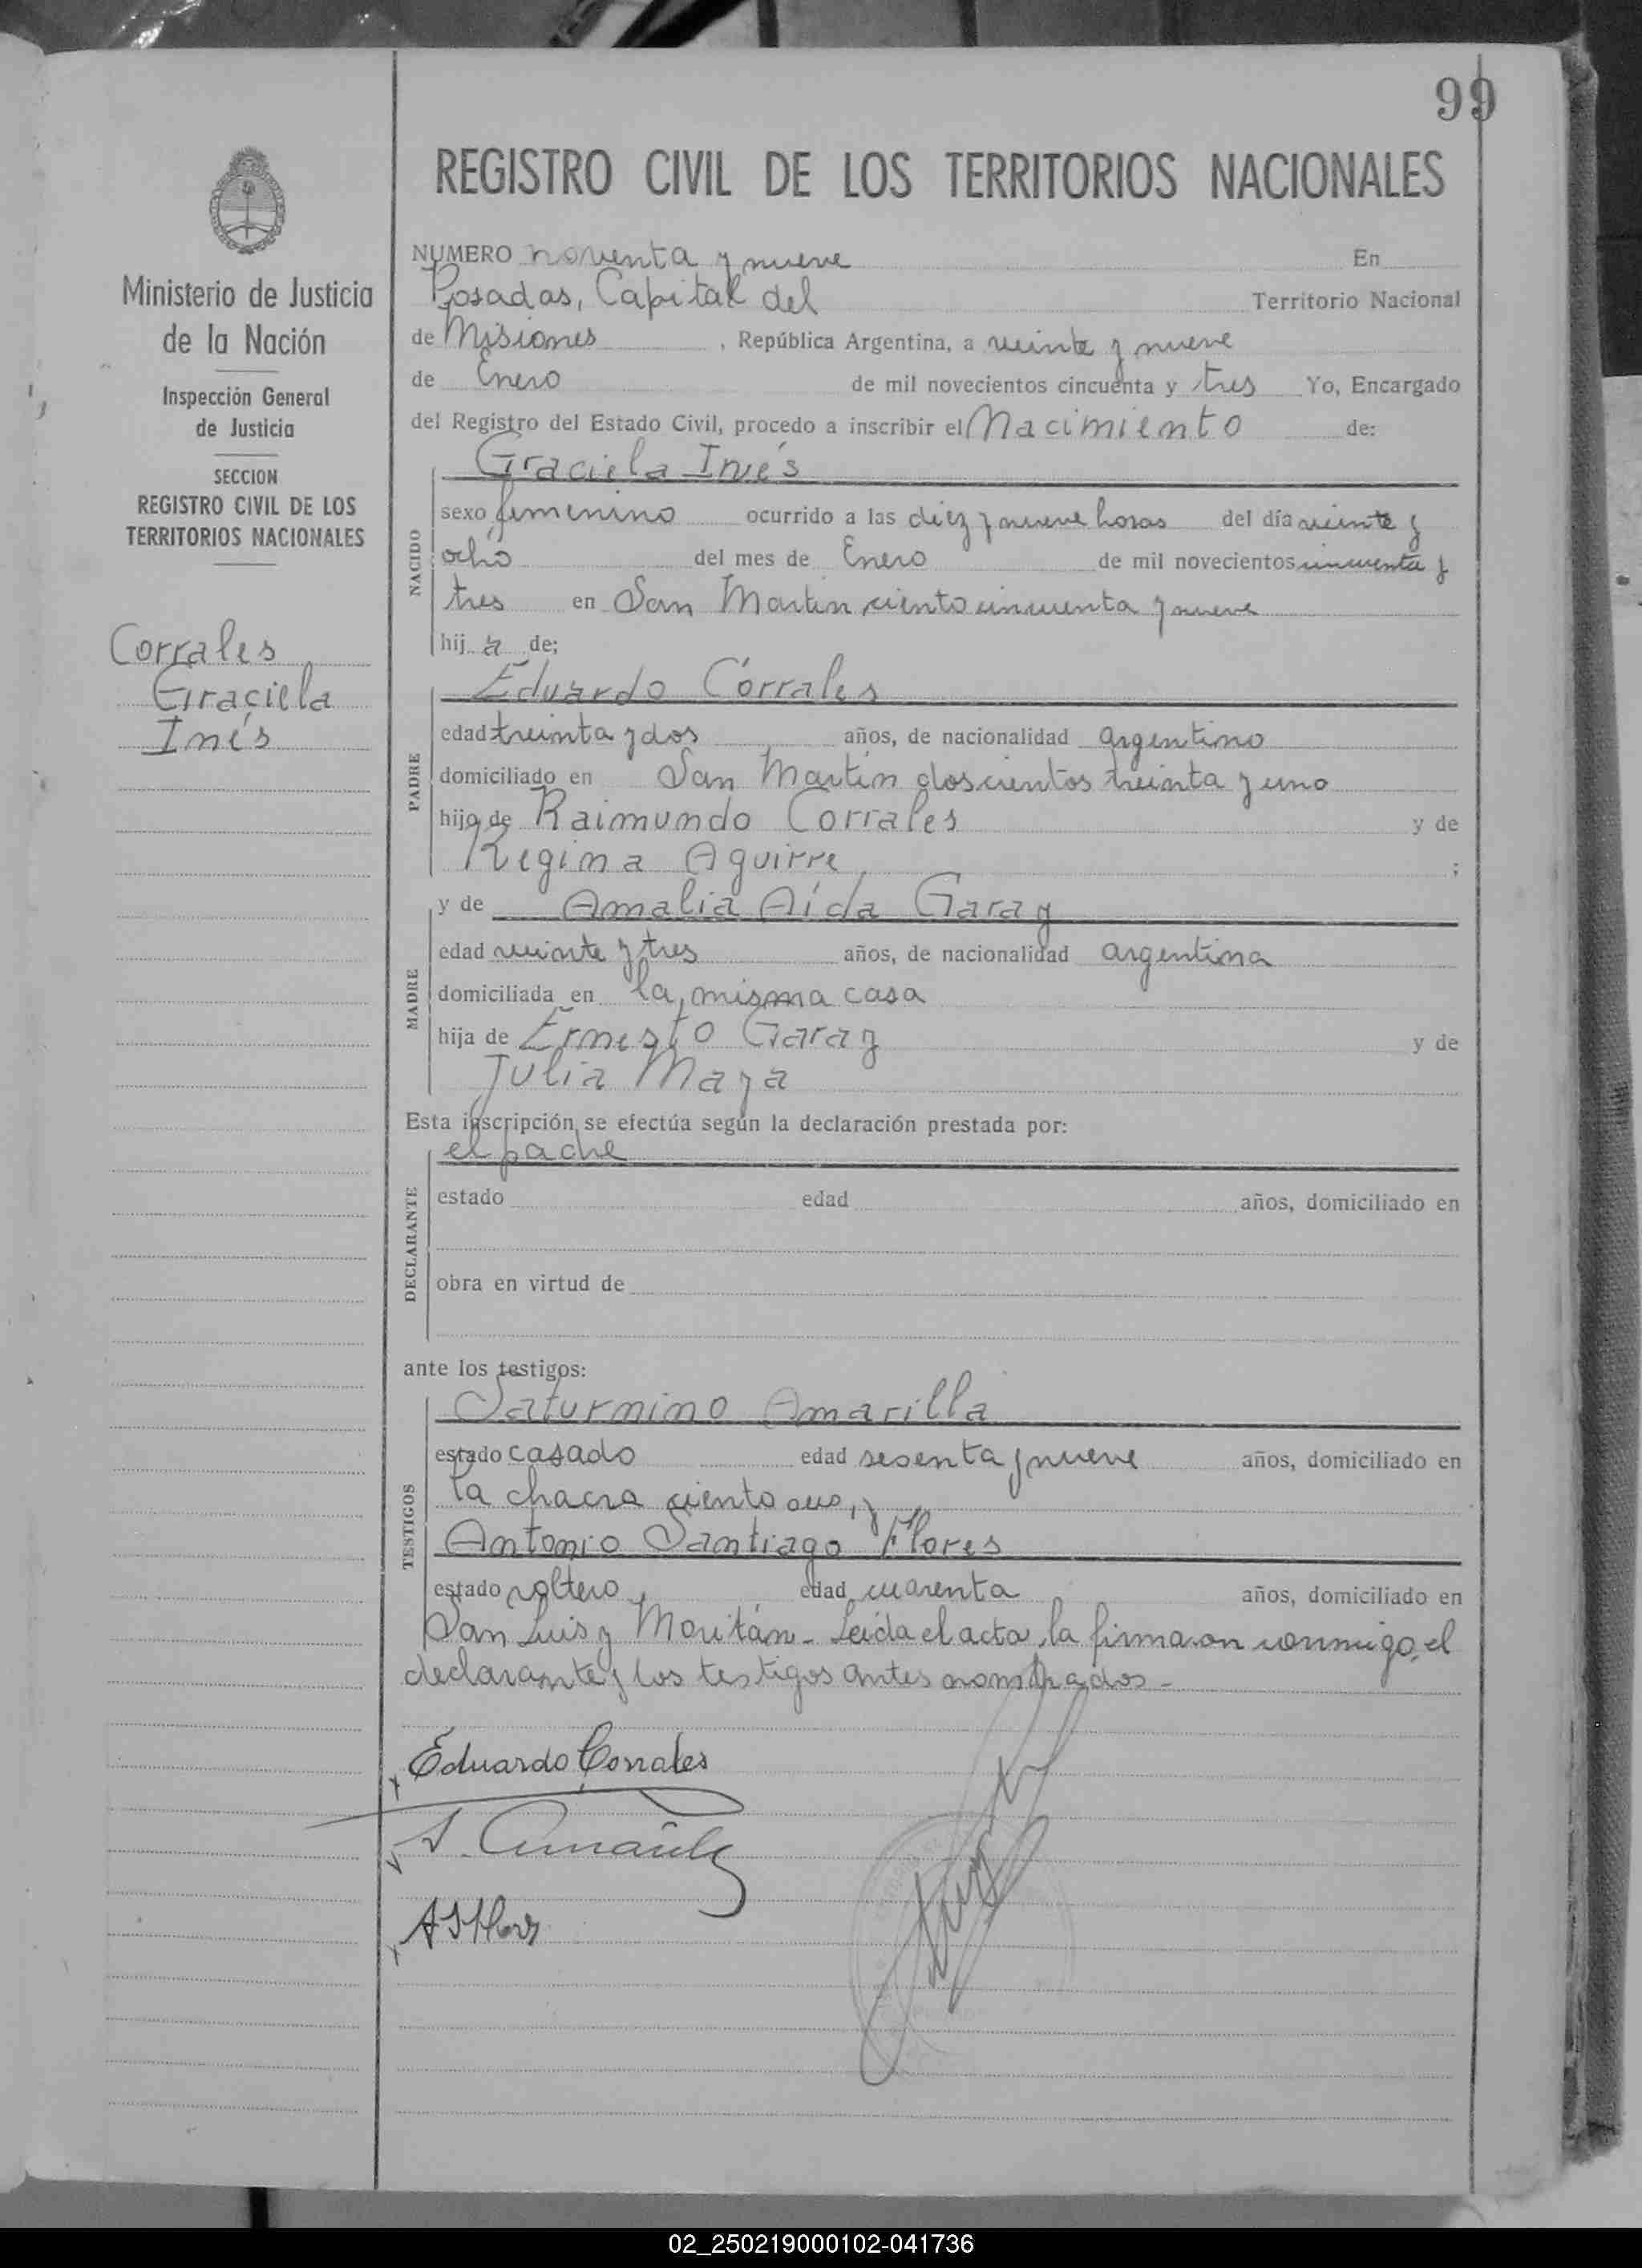 99
REGISTRO CIVIL DE LOS TERRITORIOS NACIONALES
Ministerio de Justicia
de la Nación
Inspección General
de Justicia
SECCION
REGISTRO CIVIL DE LOS
TERRITORIOS NACIONALES
Corrales
Graciela
Inés
NUMERO noventa y nueve En
Posadas, Capital del Territorio Nacional
de Misiones, República Argentina, a veinte y nueve
de Enero de mil novecientos cincuenta y tres Yo, Encargado
del Registro del Estado Civil, procedo a inscribir el Nacimiento de:
NACIDO
Graciela Inés
sexo femenino ocurrido a las diez y nueve horas del día veinte y
ocho del mes de Enero de mil novecientos cincuenta y
tres en San Martin ciento cincuenta y nueve
hija de;
PADRE
Eduardo Corrales
edad treinta y dos años, de nacionalidad argentino
domiciliado en San Martín doscientos treinta y uno
hijo de Raimundo Corrales y de
Regina Aguirre ;
MADRE
y de Amalia Aída Garay
edad veinte y tres años, de nacionalidad argentina
domiciliada en la misma casa
hija de Ernesto Garay y de
Julia Maya
Esta inscripción se efectúa según la declaración prestada por:
DECLARANTE
el padre
estado edad años, domiciliado en
obra en virtud de
ante los testigos:
TESTIGOS
Saturnino Amarilla
estado casado edad sesenta y nueve años, domiciliado en
la chacra ciento y
Antonio Santiago Flores
estado soltero, edad cuarenta años, domiciliado en
San Luis y Moritán - Leida el acta, la firmaron conmigo, el
declarante y los testigos antes nombrados -
Eduardo Corrales
S. Amarilla
A S Flores
02_250219000102-041736